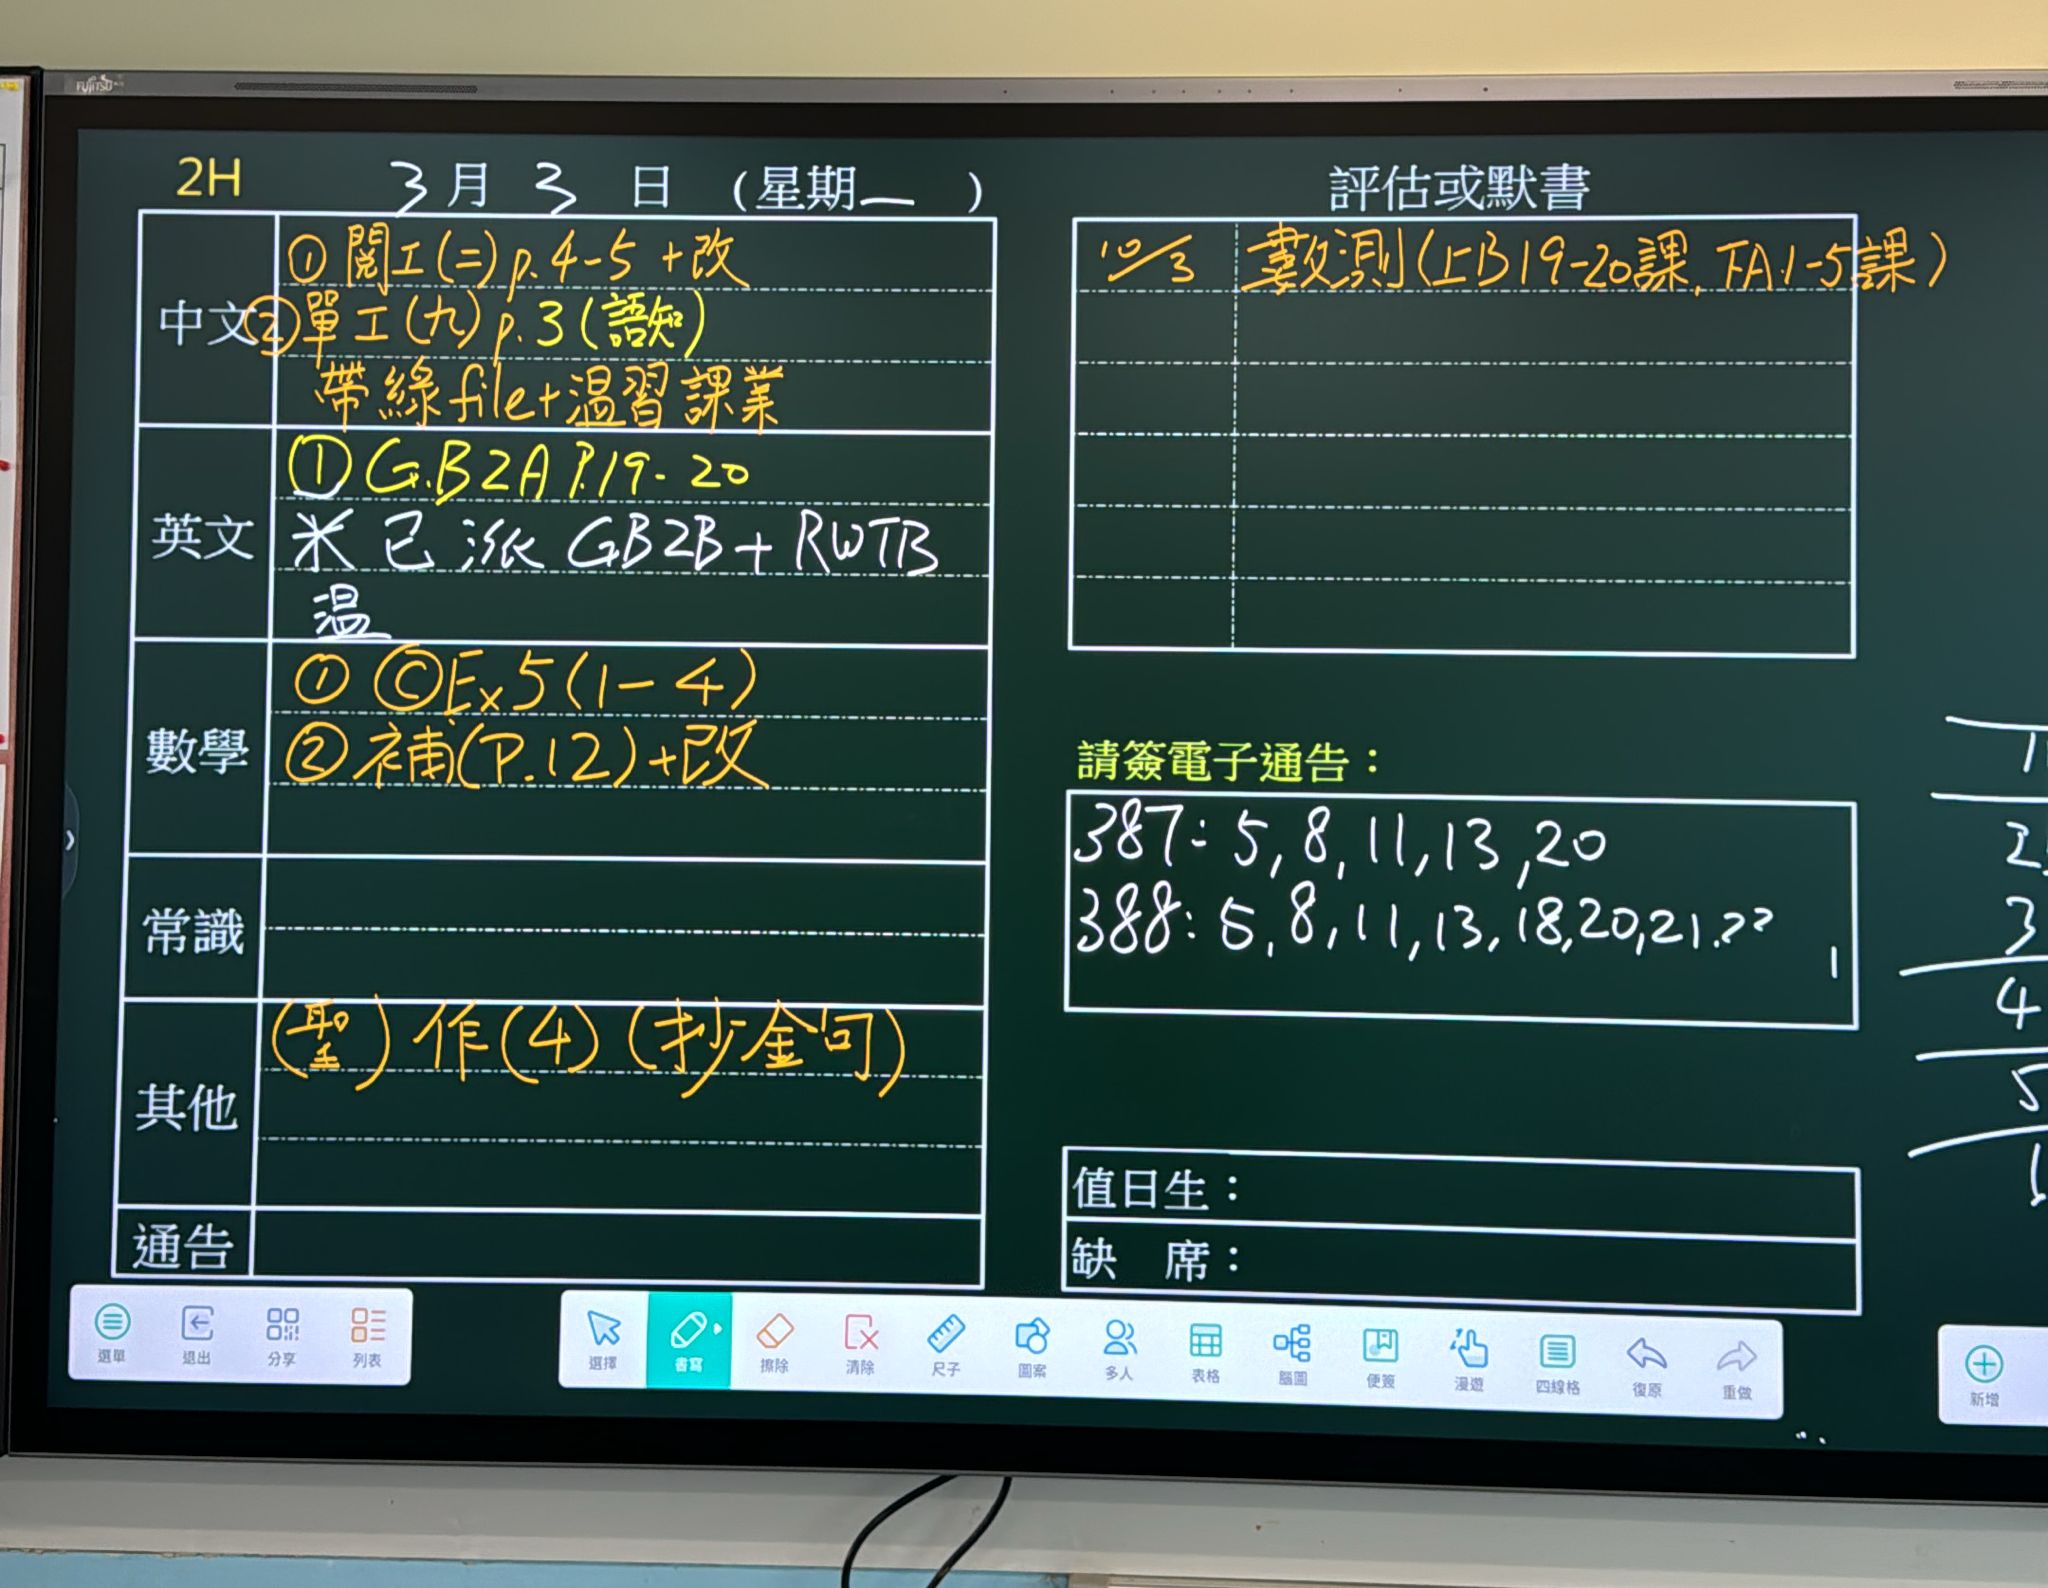 FUJITSU
2H 3月3日(星期一)
中文
①閱工(二)p.4-5+改
②單工(九)p.3(語知)
帶綠file+溫習課業
英文
①G.B2A P.19-20
米已派GB2B+RWTB
溫
數學
①ⒸEx5(1-4)
②補(P.12)+改
常識
其他
(聖)作(4)(抄金句)
通告
評估或默書
10/3 數測(上B19-20課,下A1-5課)
請簽電子通告：
387:5,8,11,13,20
388:5,8,11,13,18,20,21,22
1
值日生：
缺席：
1
2
3
4
5
1
選單
退出
分享
列表
選擇
書寫
擦除
清除
尺子
圖案
多人
表格
腦圖
便簽
漫遊
四線格
復原
重做
新增